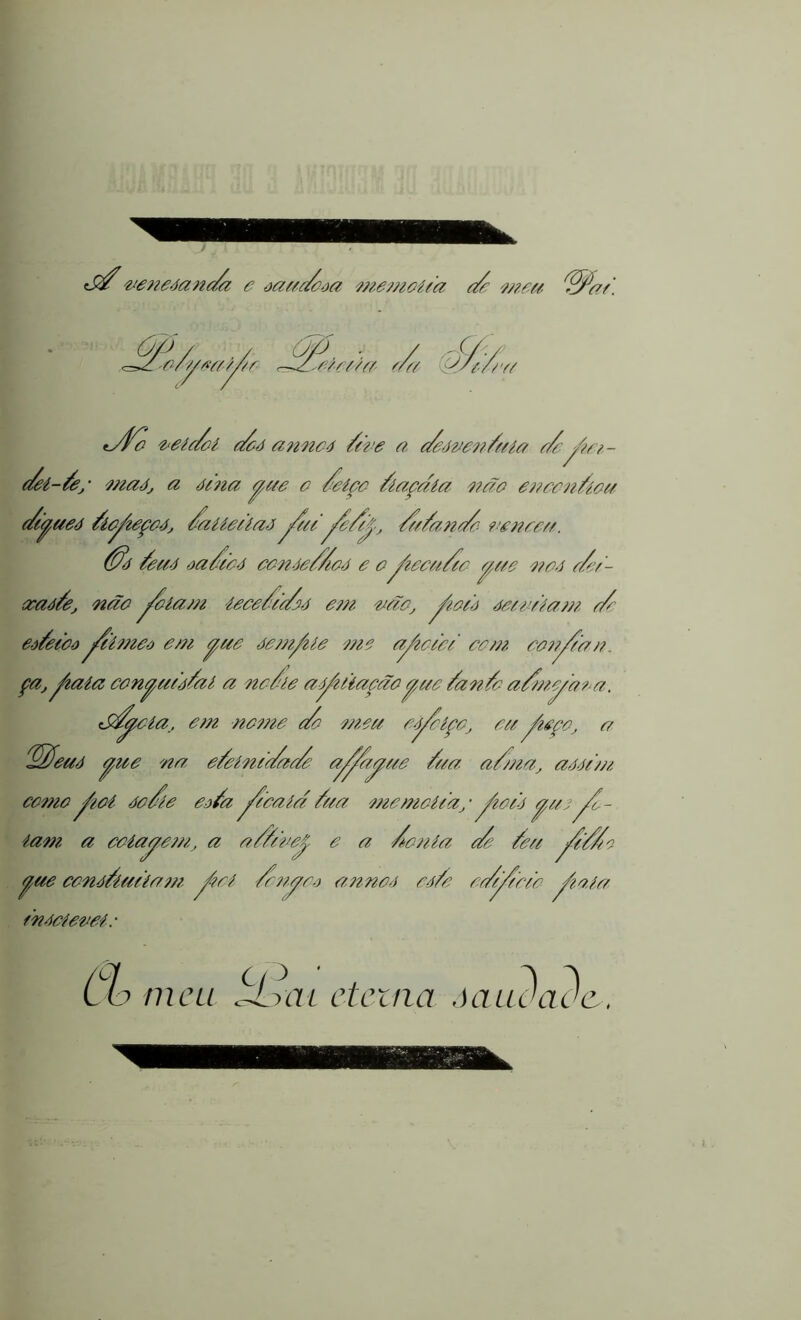 A veneranda e saudosa memoria de meu Pai.
Polycarpo Pereira da Silva
No verdor dos annos tive a desventura de per-
der-te; mas, a sina que o berço traçára não encontrou
diques tropeços, barreiras fui feliz, lutando venceu.
Os teus sabios conselhos e o peculio que nos dei-
xaste, não foram recebidos em vão, pois serviram de
esteios firmes em que sempre me apoiei com confian.
ça, para conquistar a nobre aspiração que tanto almejava.
Agora, em nome do meu esforço, eu peço, a
Deus que na eternidade affague tua alma, assim
como por sobre esta ficará tua memoria; pois que fo-
ram a coragem, a altivez e a honra de teu filho
que construiram por longos annos este edificio para
inscrever:
Ao meu Pai eterna saudade.